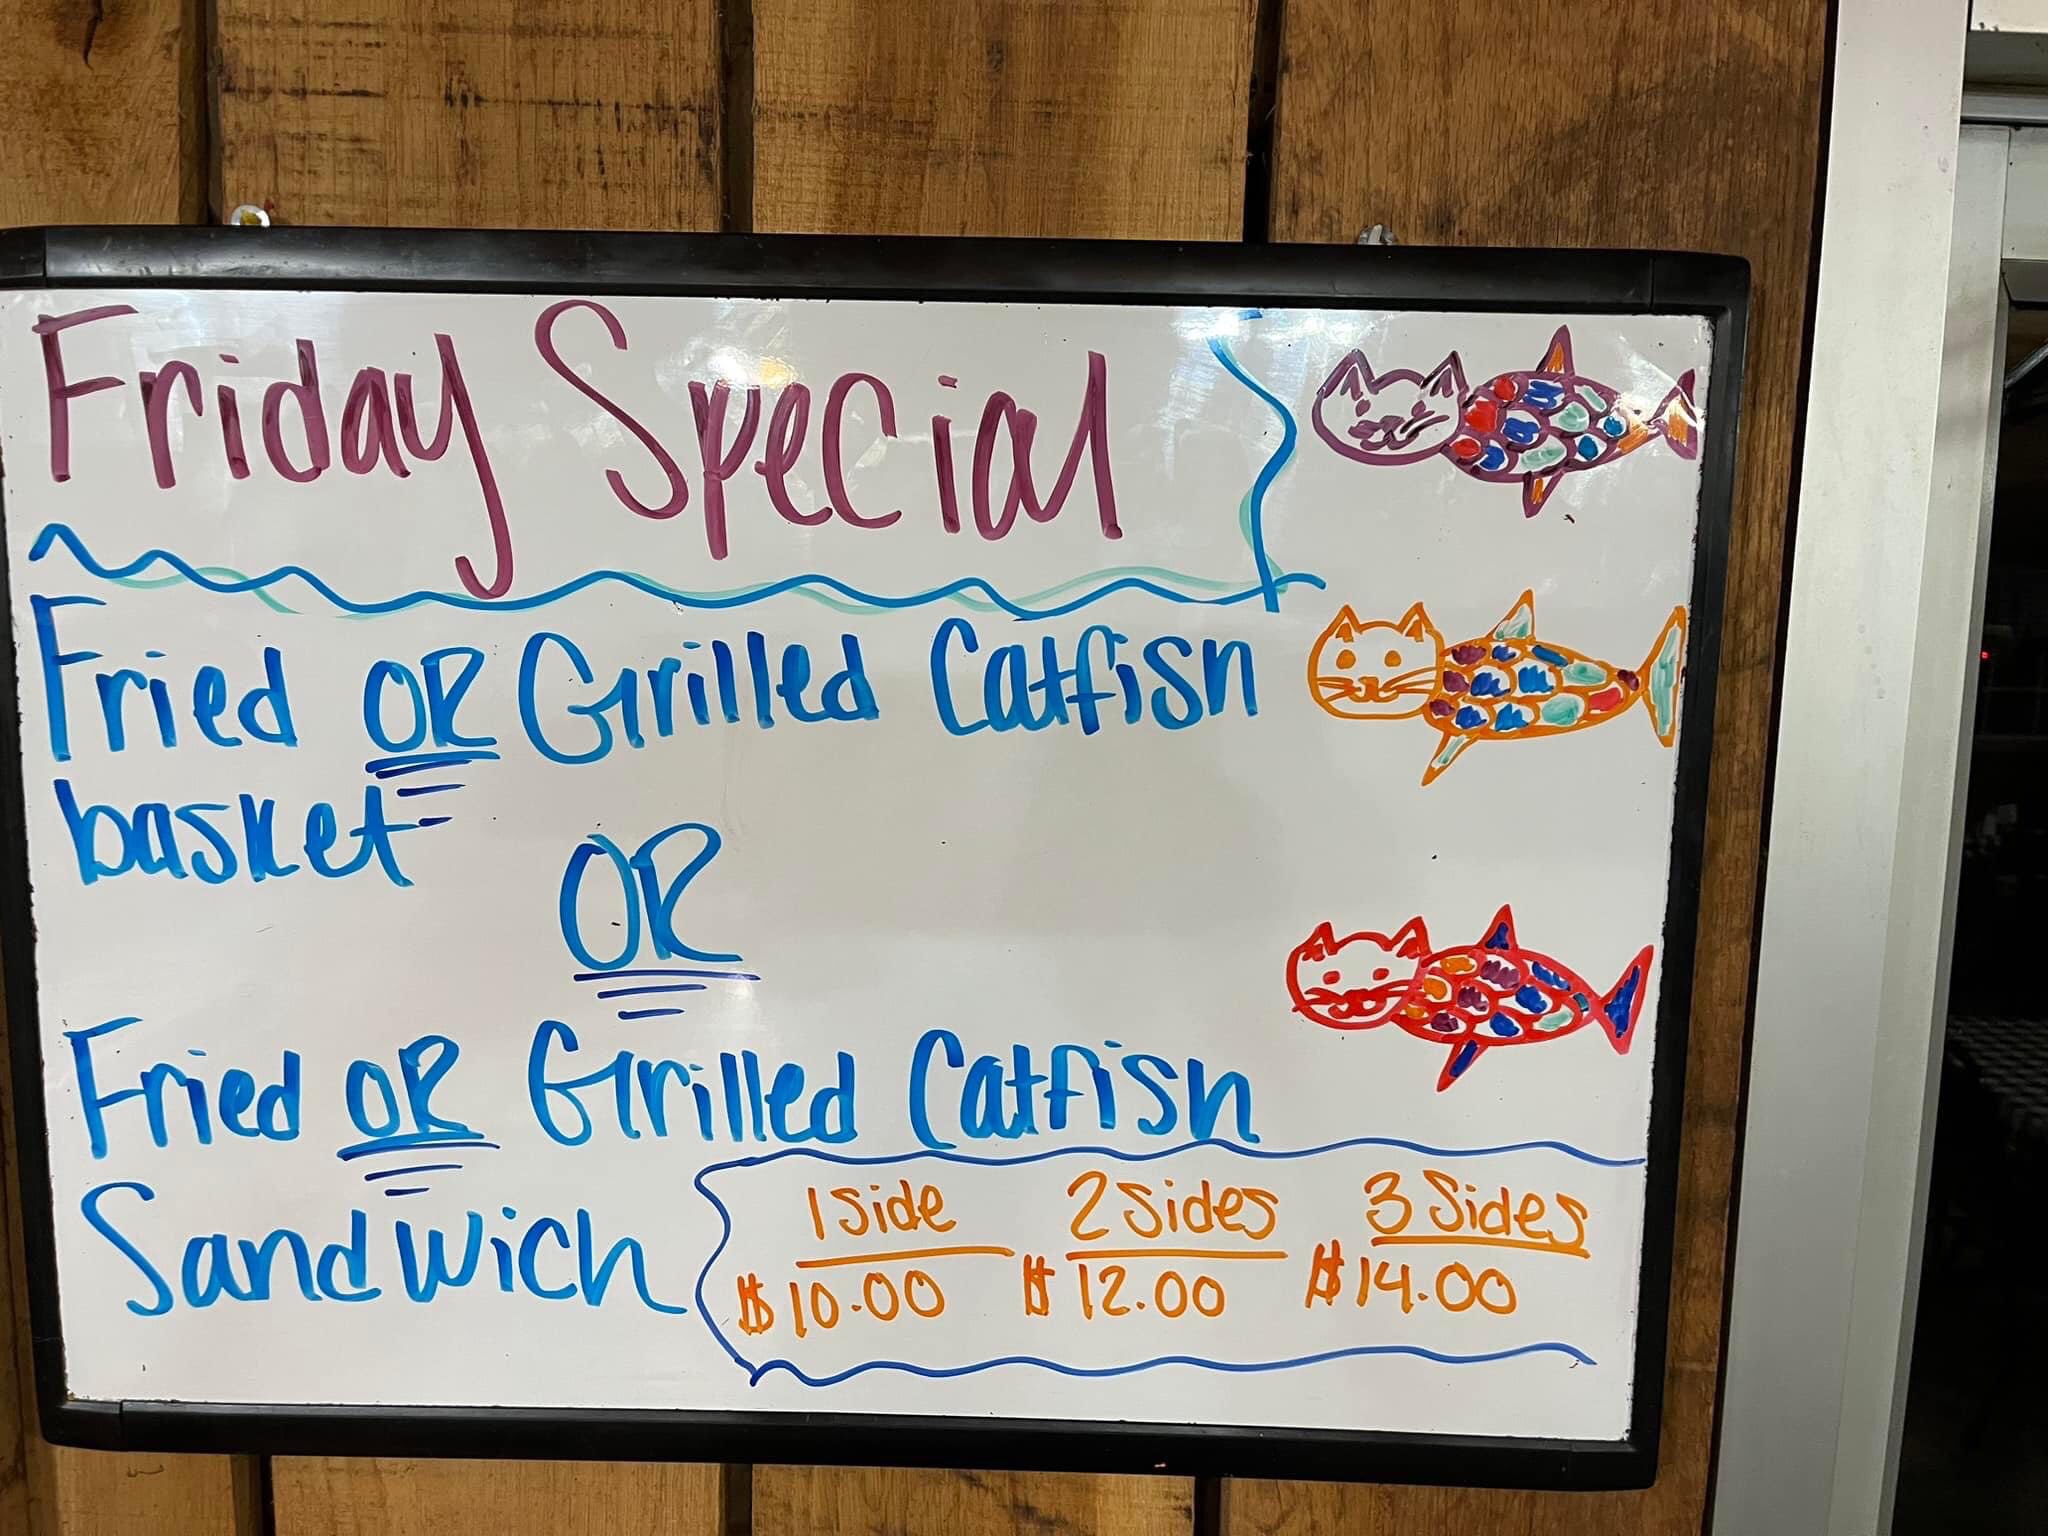 Friday Special
Fried OR Grilled Catfish
basket
OR
Fried OR Grilled Catfish
Sandwich
1 Side 2 Sides 3 Sides
$10.00 $12.00 $14.00